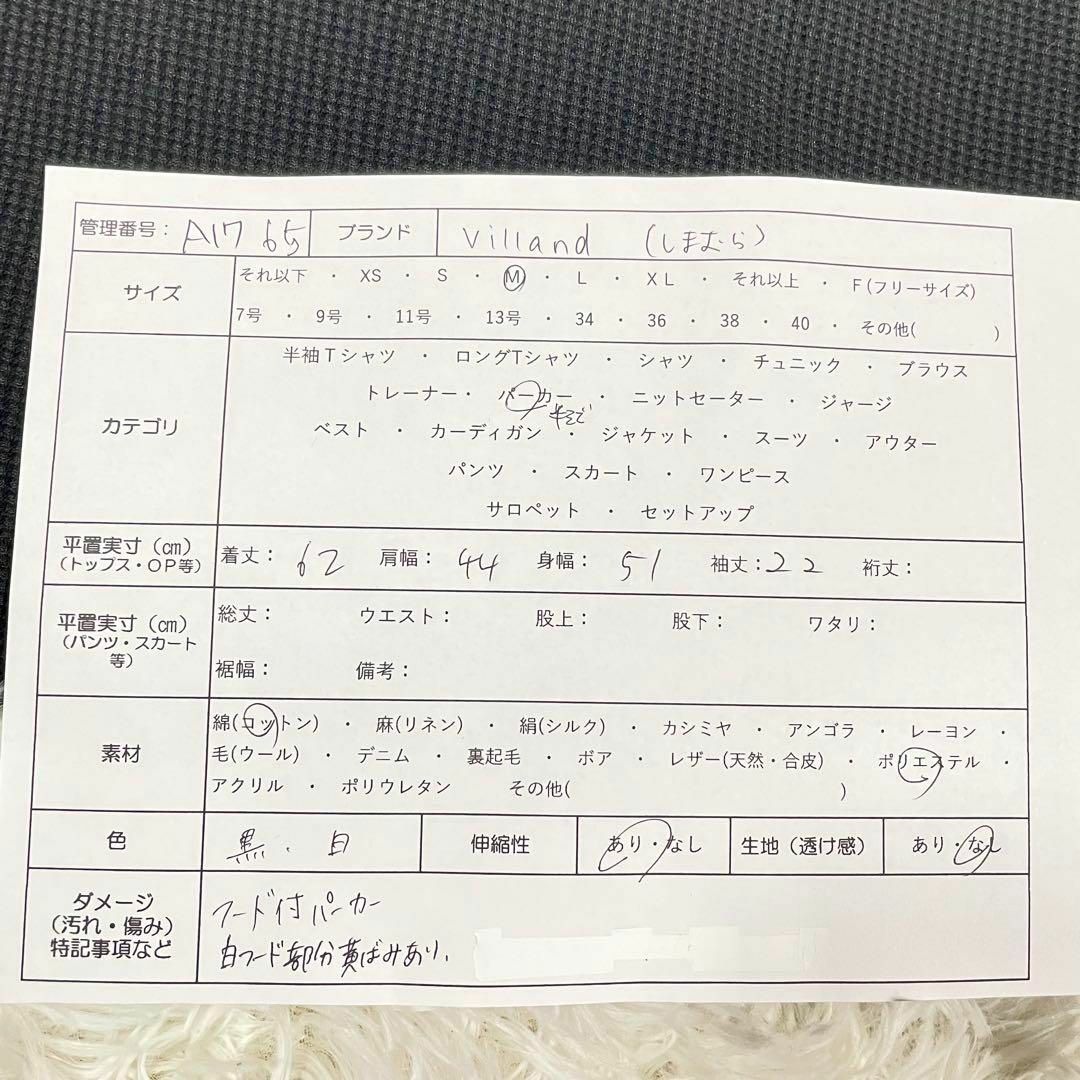 管理番号： A17 65 ブランド Villand (しまむら)
サイズ それ以下 ・ XS ・ S ・ M ・ L ・ XL ・ それ以上 ・ F(フリーサイズ)
7号 ・ 9号 ・ 11号 ・ 13号 ・ 34 ・ 36 ・ 38 ・ 40 ・ その他( )
カテゴリ
半袖Tシャツ ・ ロングTシャツ ・ シャツ ・ チュニック ・ ブラウス
トレーナー・ パーカー ・ ニットセーター ・ ジャージ
半そで
ベスト ・ カーディガン ・ ジャケット ・ スーツ ・ アウター
パンツ ・ スカート ・ ワンピース
サロペット ・ セットアップ
平置実寸（㎝）
（トップス・OP等）
着丈： 62 肩幅： 44 身幅： 51 袖丈：22 裄丈：
平置実寸（㎝）
（パンツ・スカート
等）
総丈： ウエスト： 股上： 股下： ワタリ：
裾幅： 備考：
素材
綿(コットン) ・ 麻(リネン) ・ 絹(シルク) ・ カシミヤ ・ アンゴラ ・ レーヨン ・
毛(ウール) ・ デニム ・ 裏起毛 ・ ボア ・ レザー(天然・合皮) ・ ポリエステル ・
アクリル ・ ポリウレタン その他( )
色 黒、白 伸縮性 あり・なし 生地（透け感） あり・なし
ダメージ
（汚れ・傷み）
特記事項など
フード付パーカー
白フード部分黄ばみあり、